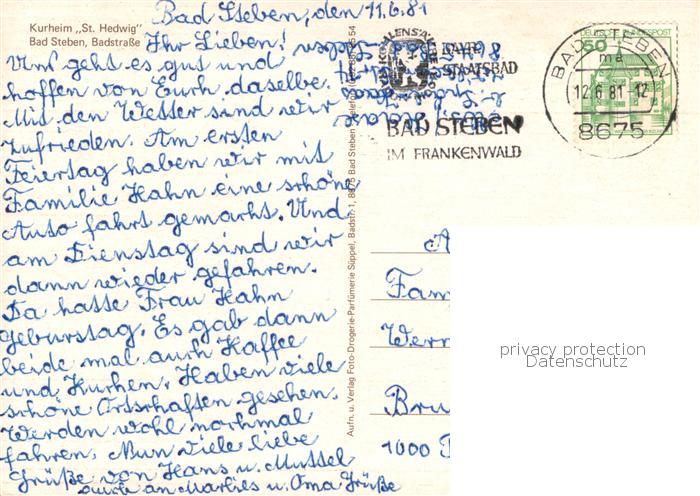 Bad Steben, den 11.6.81
Kurheim „St. Hedwig"
Bad Steben, Badstraße
Ihr Lieben!
Uns geht es gut und
hoffen von Euch daselbe.
Mit den Wetter sind wir
zufrieden. Am ersten
Feiertag haben wir mit
Familie Hahn eine schöne
Auto fahrt gemacht. Und
am Dienstag sind wir
dann wieder gefahren.
Da hatte Frau Hahn
Geburstag. Es gab dann
beide mal auch Kaffee
und Kuchen. Haben viele
schöne Ortschaften gesehen.
Werden wohl nochmal
fahren. Nun viele liebe
Grüße von Hans u. Muttel
auch an Marlies u. Oma Grüße
Aufn. u. Verlag Foto-Drogerie-Parfümerie Süppel, Badstr. 1, 8675 Bad Steben
BAYR.
STAATSBAD
BAD STEBEN
IM FRANKENWALD
DEUTSCHE BUNDESPOST
50
BAD STEBEN
ma
12.6.81-12
8675
A
Fam
Wern
Bru
1000
privacy protection
Datenschutz